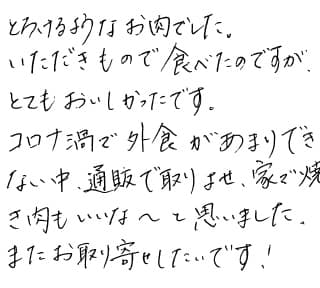 とろけるようなお肉でした。
いただきもので食べたのですが、
とてもおいしかったです。
コロナ渦で外食があまりでき
ない中、通販で取りよせ、家で焼
き肉もいいな〜と思いました。
またお取り寄せしたいです！